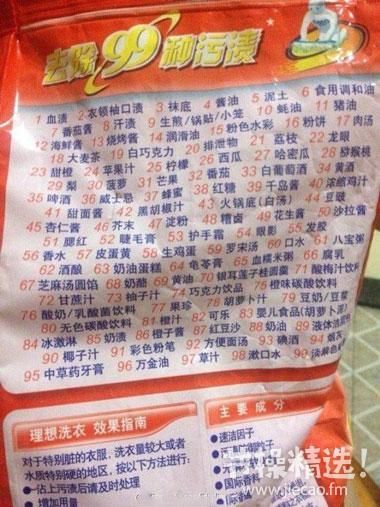 去除99种污渍
1 血渍 2 衣领袖口渍 3 袜底 4 酱油 5 泥土 6 食用调和油
7 番茄酱 8 汗渍 9 生煎/锅贴/小笼 10 蚝油 11 猪油
12 海鲜酱 13 烧烤酱 14 润滑油 15 粉色水彩 16 粉饼 17 肉汤
18 大麦茶 19 白巧克力 20 排泄物 21 荔枝 22 龙眼
23 甜橙 24 苹果汁 25 柠檬 26 西瓜 27 哈密瓜 28 猕猴桃
29 梨 30 菠萝 31 芒果 32 番茄 33 白葡萄酒 34 黄酒
35 啤酒 36 威士忌 37 蜂蜜 38 红糖 39 千岛酱 40 浓缩鸡汁
41 甜面酱 42 黑胡椒汁 43 火锅底(白汤) 44 豆豉
45 杏仁酱 46 芥末 47 淀粉 48 糟卤 49 花生酱 50 沙拉酱
51 腮红 52 睫毛膏 53 护手霜 54 眼影 55 发胶
56 香水 57 皮蛋黄 58 生鸡蛋 59 罗宋汤 60 口水 61 八宝粥
62 酒酿 63 奶油蛋糕 64 龟苓膏 65 血糯米粥 66 腐乳
67 芝麻汤圆馅 68 奶酪 69 黄油 70 银耳莲子桂圆羹 71 酸梅汁饮料
72 甘蔗汁 73 柚子汁 74 巧克力饮品 75 橙味碳酸饮料
76 酸奶/乳酸菌饮料 77 果珍 78 胡萝卜汁 79 豆奶/豆浆
80 无色碳酸饮料 81 橙汁 82 可乐 83 婴儿食品(胡萝卜泥)
84 冰激淋 85 奶渍 86 橙子酱 87 红豆沙 88 奶油 89 液体油
90 椰子汁 91 彩色粉笔 92 方便面汤 93 碘酒 94 烟灰
95 中草药牙膏 96 万金油 97 草汁 98 漱口水 99
理想洗衣 效果指南
对于特别脏的衣服,洗衣量较大或者
水质特别硬的地区,按以下方法进行:
●沾上污渍后请及时处理
●增加用量
主要成分
●速洁因子
●国际香
节操精选!
www.jiecao.fm